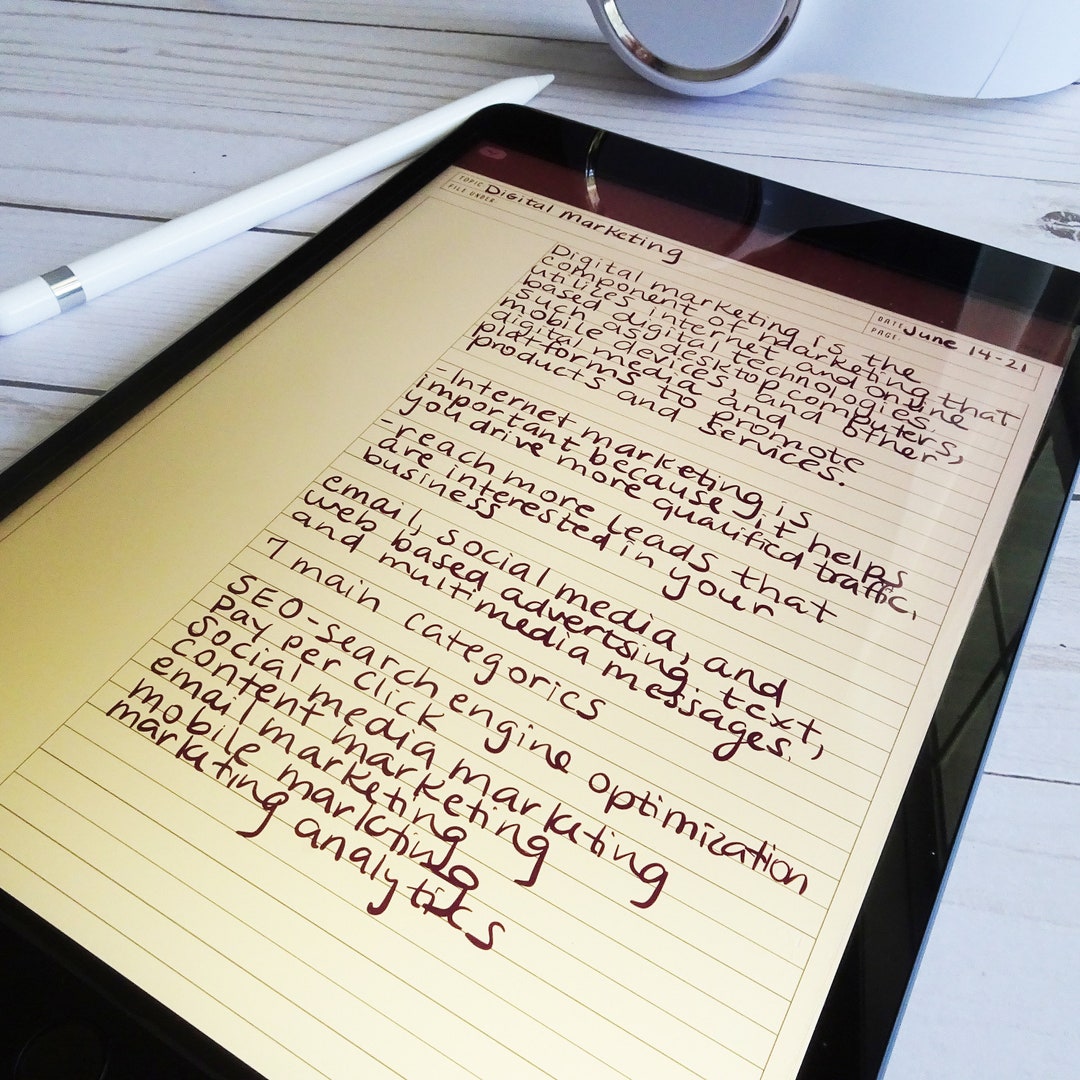 TOPIC Digital Marketing
FILE UNDER
DATE June 14-21
PAGE
Digital marketing is the
component of marketing that
utilizes internet and online
based digital technologies
such as desktop computers,
mobile devices, and other
digital media and
platforms to promote
products and services.
-Internet marketing is
important because it helps
you drive more qualified traffic,
-reach more leads that
are interested in your
business
email, social media, and
web based advertsing, text,
and multimedia messages.
7 main categories
SEO-search engine optimization
Pay per click
Social media marketing
content marketing
email marketing
mobile marketing
marketing analytics